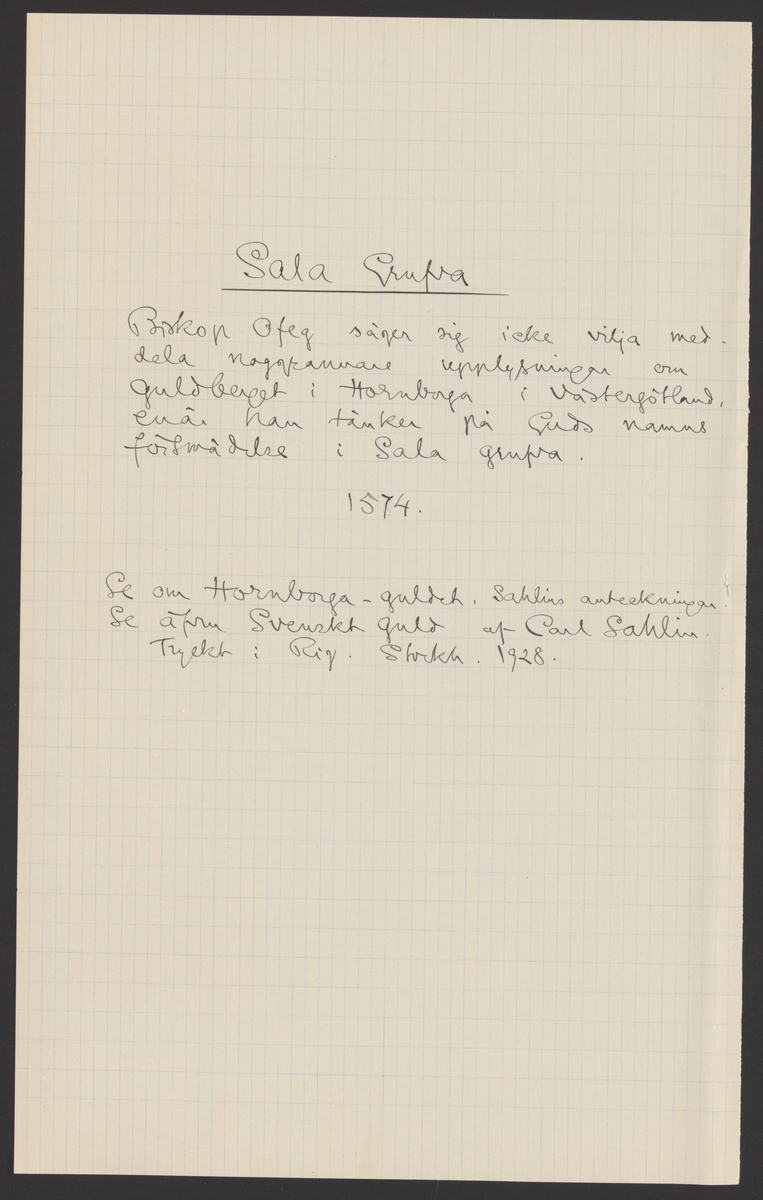 Sala Grufva
Biskop Ofeg säger sig icke vilja med-
dela noggrannare upplysningar om
guldberget i Hornborga i Västergötland,
enär han tänker på Guds namns
försmädelse i Sala grufva.
1574.
Se om Hornborga-guldet. Sahlins anteckningar.
Se äfven Svenskt guld af Carl Sahlin.
Tryckt i Rig. Stockh. 1928.